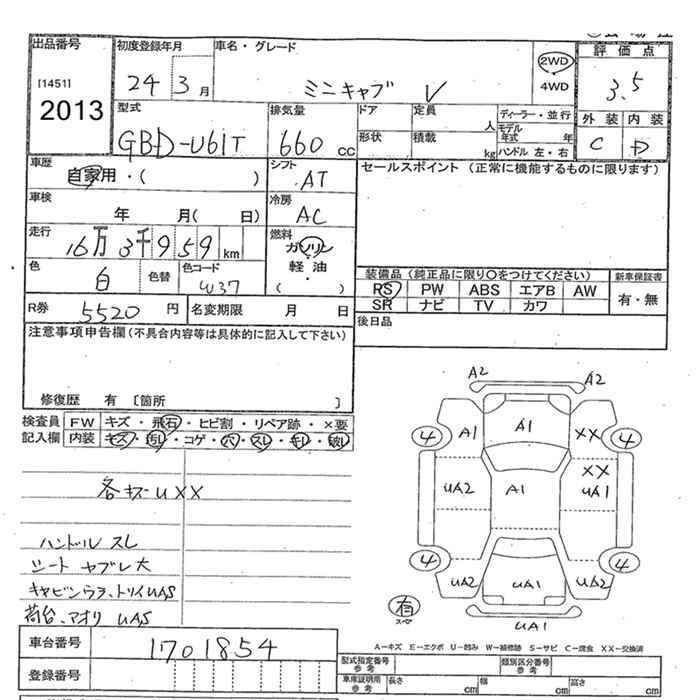 出品番号
[1451]
2013
初度登録年月
24 3 月
車名・グレード
ミニキャブ V
2WD
4WD
評価点
3.5
外装 内装
C D
型式
GBD-U61T
排気量
660 cc
ドア
形状
定員
人
積載
kg
ディーラー・並行
モデル年式 年
ハンドル 左・右
車歴
自家用・( )
シフト
AT
車検
年 月( 日)
冷房
AC
走行
16万 3千 9 5 9 km
燃料
ガソリン
軽油
( ・ )
色
白
色替
色コード
W37
R券 5520 円
名変期限 月 日
セールスポイント (正常に機能するものに限ります)
装備品 (純正品に限り○をつけてください)
PS PW ABS エアB AW
SR ナビ TV カワ
新車保証書
有・無
後日品
注意事項申告欄(不具合内容等は具体的に記入して下さい)
修復歴 有 [箇所 ]
検査員
記入欄
FW キズ・飛石・ヒビ割・リペア跡・×要
内装 キズ・汚レ・コゲ・穴・スレ・キレ・破レ
各キズ UXX
ハンドル スレ
シート ヤブレ大
キャビンウラ、トリイ UAS
荷台、アオリ UAS
A2 A2
4 A1 A1 XX 4
XX
UA2 A1 UA1
4 4
UA2 UA1 UA2
有
スペア
UA1
車台番号 1701854
登録番号
A−キズ E−エクボ U−凹み W−補修跡 S−サビ C−腐食 XX−交換済
型式指定番号
参考
類別区分番号
参考
車庫証明用
参考
長さ cm 幅 cm 高さ cm